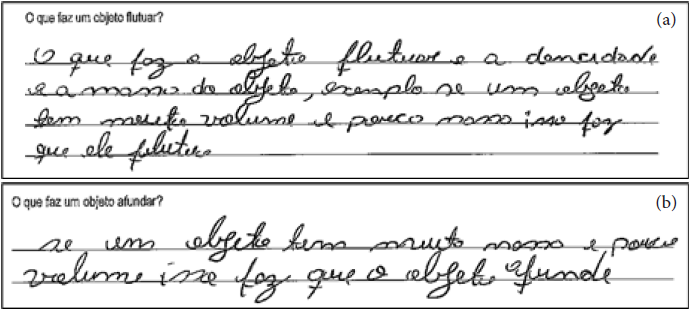 O que faz um objeto flutuar? (a)
O que faz o objeto flutuar e a dencidade
e a massa do objeto, exemplo se um objeto
tem muito volume e pouco massa isso faz
que ele flutua
O que faz um objeto afundar? (b)
se um objeto tem muito massa e pouco
volume isso faz que o objeto afunde